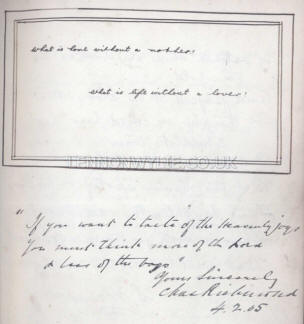 what is love without a mother!
what is life without a lover!
TENNONWYLIE.CO.UK
"If you want to taste of the Heavenly joys
You must think more of the Lord
& less of the boys"
Yours Sincerely
Chas
4.2.05